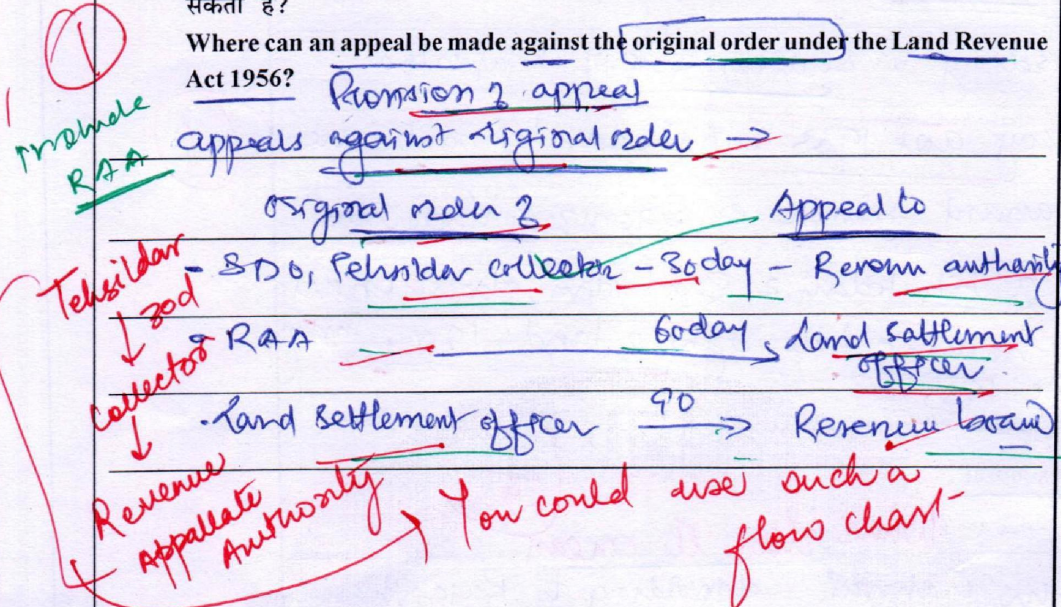 सकता है?
Where can an appeal be made against the original order under the Land Revenue
Act 1956?
Provision of appeal
appeals against original order →
original order of
Appeal to
- SDO, Tehsildar collector - 30 day - Revenue authority
RAA 60 day, Land sattlement
officer
. Land settlement officer 90 → Revenue board
1
RAA
Tehsildar
↓ 30d
Collector
↓
Revenue
Appallate
Authority
You could use such a
flow chart